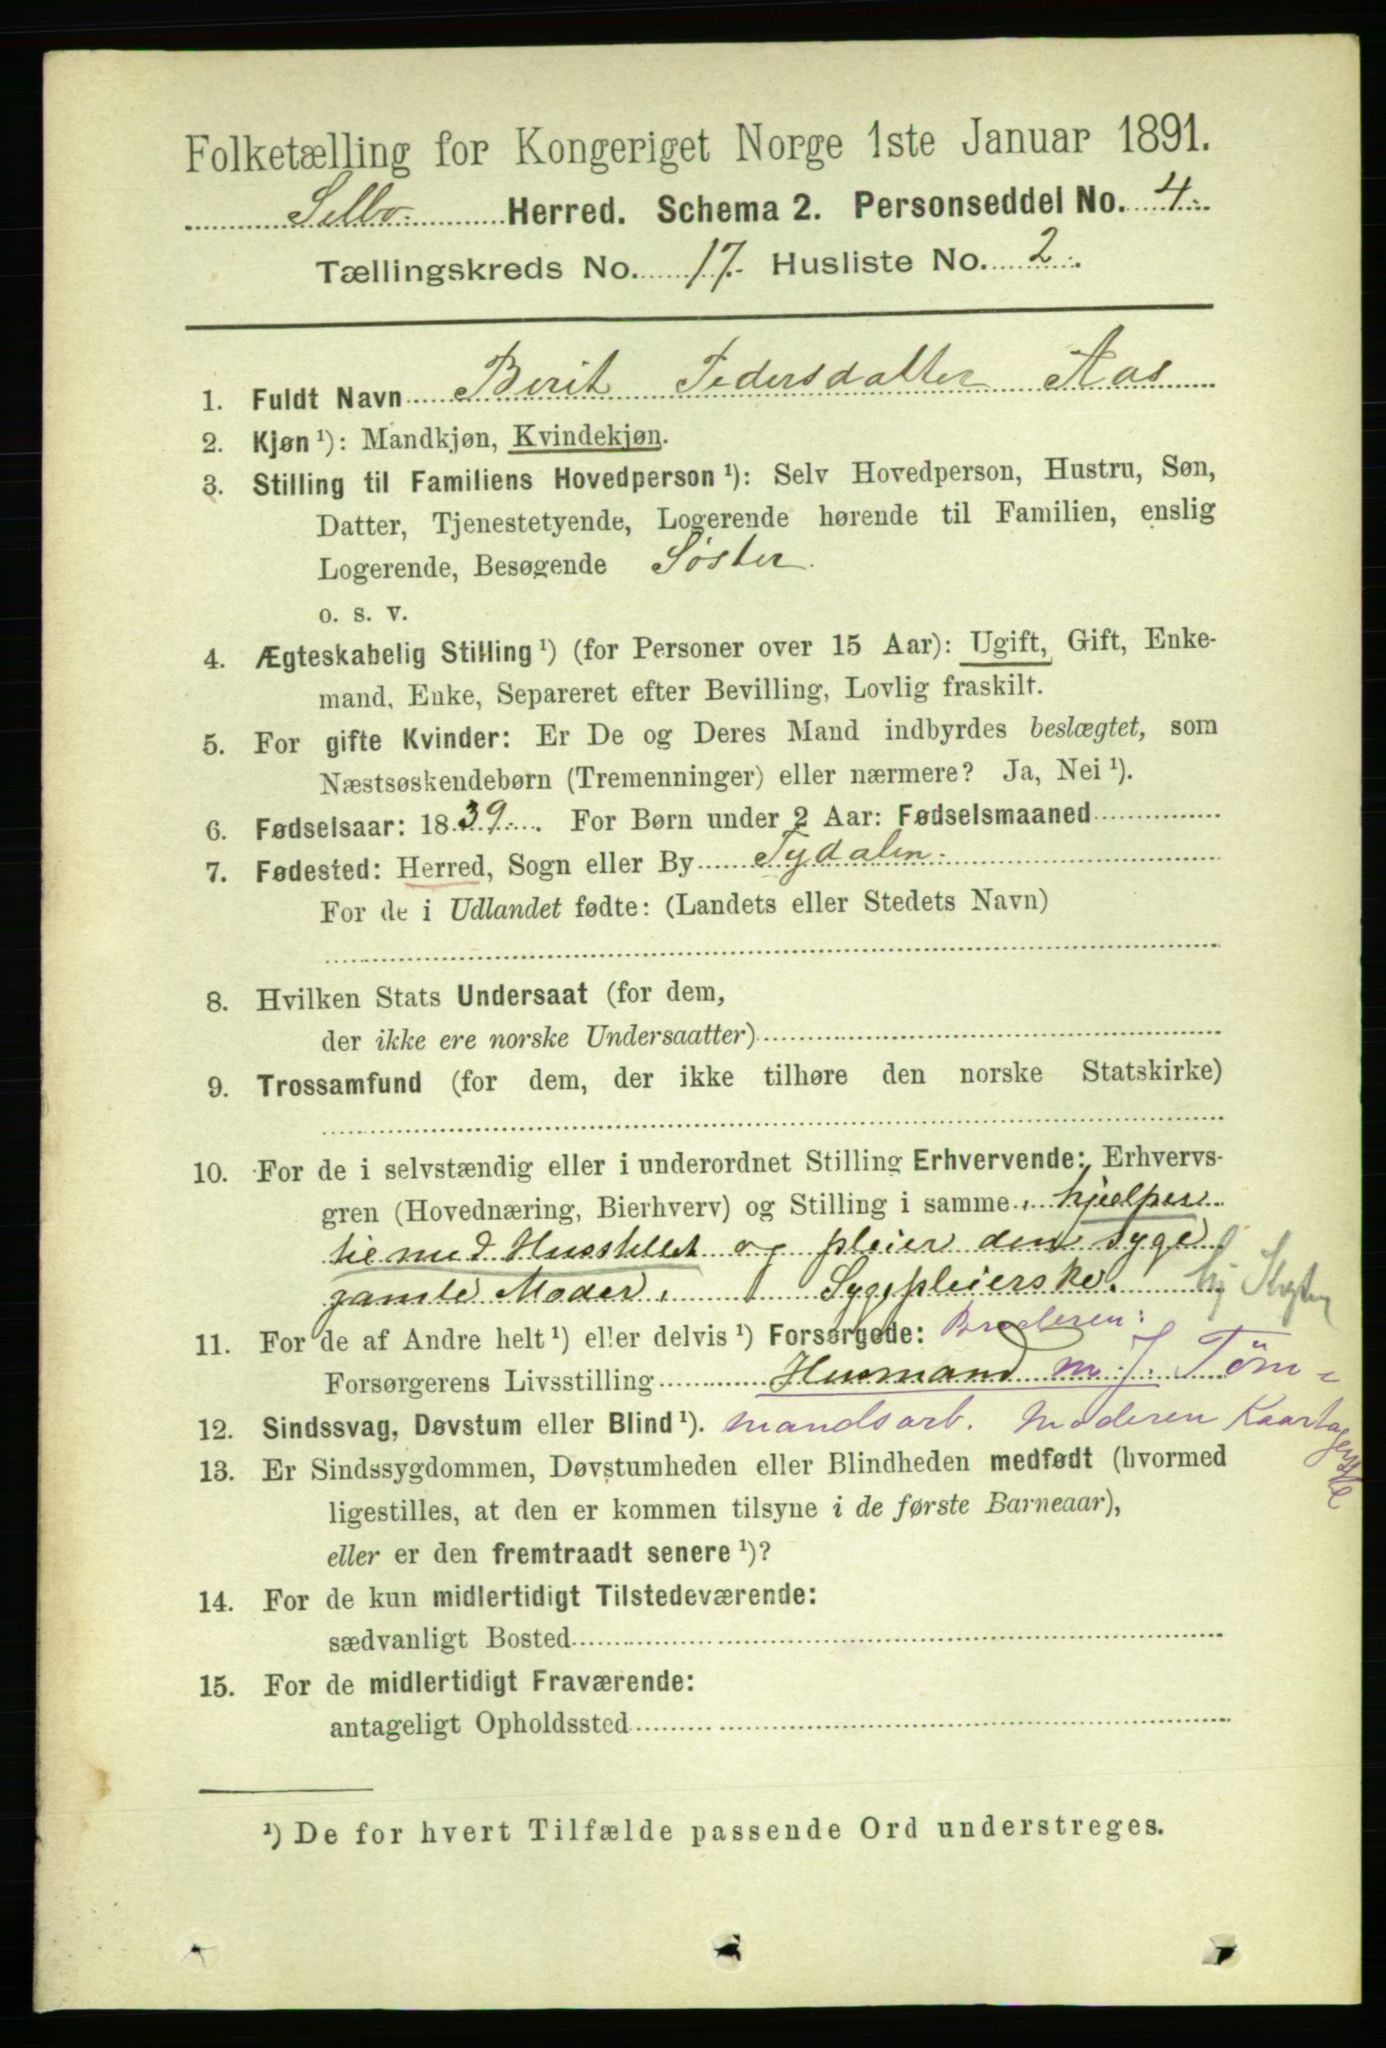 Folketælling for Kongeriget Norge 1ste Januar 1891.
Selbo Herred. Schema 2. Personseddel No. 4.
Tællingskreds No. 17. Husliste No. 2.
1. Fuldt Navn Berit Pedersdatter Aas
2. Kjøn ¹): Mandkjøn, Kvindekjøn.
3. Stilling til Familiens Hovedperson ¹): Selv Hovedperson, Hustru, Søn,
Datter, Tjenestetyende, Logerende hørende til Familien, enslig
Logerende, Besøgende Søster.
o. s. v.
4. Ægteskabelig Stilling ¹) (for Personer over 15 Aar): Ugift, Gift, Enke-
mand, Enke, Separeret efter Bevilling, Lovlig fraskilt.
5. For gifte Kvinder: Er De og Deres Mand indbyrdes beslægtet, som
Næstsøskendebørn (Tremenninger) eller nærmere? Ja, Nei ¹).
6. Fødselsaar: 1839. For Børn under 2 Aar: Fødselsmaaned
7. Fødested: Herred, Sogn eller By Tydalen.
For de i Udlandet fødte: (Landets eller Stedets Navn)
8. Hvilken Stats Undersaat (for dem,
der ikke ere norske Undersaatter)
9. Trossamfund (for dem, der ikke tilhøre den norske Statskirke)
10. For de i selvstændig eller i underordnet Stilling Erhvervende: Erhvervs-
gren (Hovednæring, Bierhverv) og Stilling i samme hjelper
til med Husstellet og pleier den syge
gamle Moder, Sygepleierske.
11. For de af Andre helt ¹) eller delvis ¹) Forsørgede: Broderen:
Forsørgerens Livsstilling Husmand m. J. Tøm-
12. Sindssvag, Døvstum eller Blind ¹). mandsarb. Moderen
13. Er Sindssygdommen, Døvstumheden eller Blindheden medfødt (hvormed
ligestilles, at den er kommen tilsyne i de første Barneaar),
eller er den fremtraadt senere ¹)?
14. For de kun midlertidigt Tilstedeværende:
sædvanligt Bosted
15. For de midlertidigt Fraværende:
antageligt Opholdssted
¹) De for hvert Tilfælde passende Ord understreges.